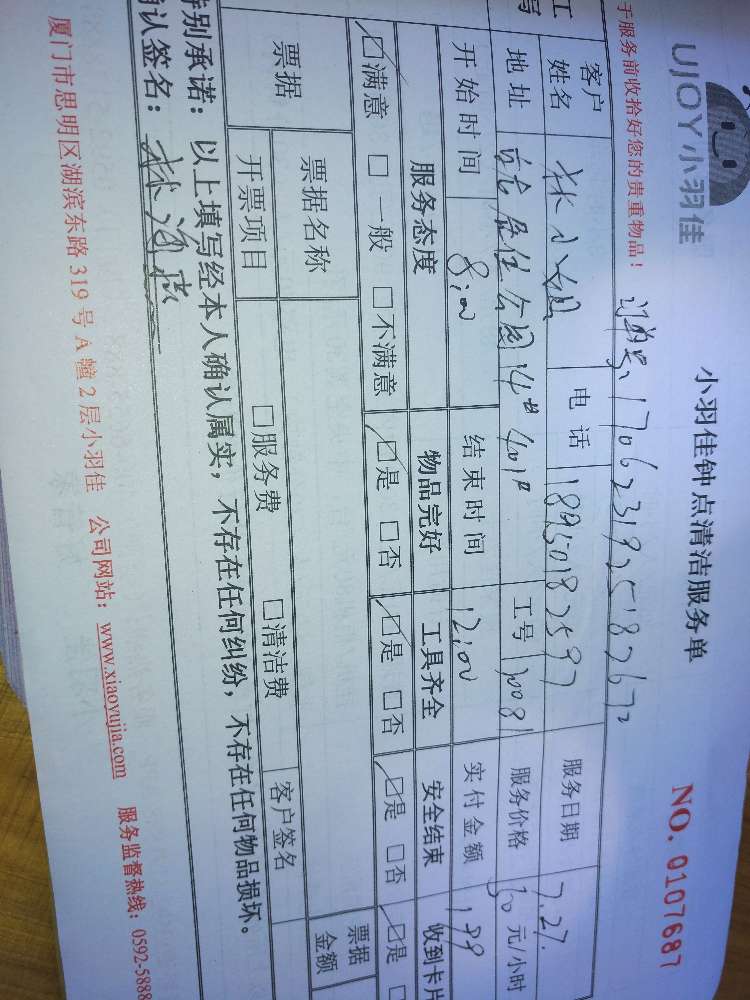 UJOY小羽佳
小羽佳钟点清洁服务单
NO. 0107687
于服务前收拾好您的贵重物品！
订单号: 170623192518267
客户姓名 林小姐 电话 18950182597 服务日期 7.27.
地址 佳公园14# 401# 工号 服务价格 30 元/小时
开始时间 8:00 结束时间 12:00 实付金额 199
服务态度 物品完好 工具齐全 安全结束 收到卡片
☑满意 □一般 □不满意 ☑是 □否 ☑是 □否 ☑是 □否 ☑是
票据 票据名称 票据金额
开票项目 □服务费 □清洁费 客户签名
特别承诺：以上填写经本人确认属实，不存在任何纠纷，不存在任何物品损坏。
确认签名：林
厦门市思明区湖滨东路 319 号 A 幢 2 层小羽佳 公司网站：www.xiaoyujia.com 服务监督热线：0592-5888